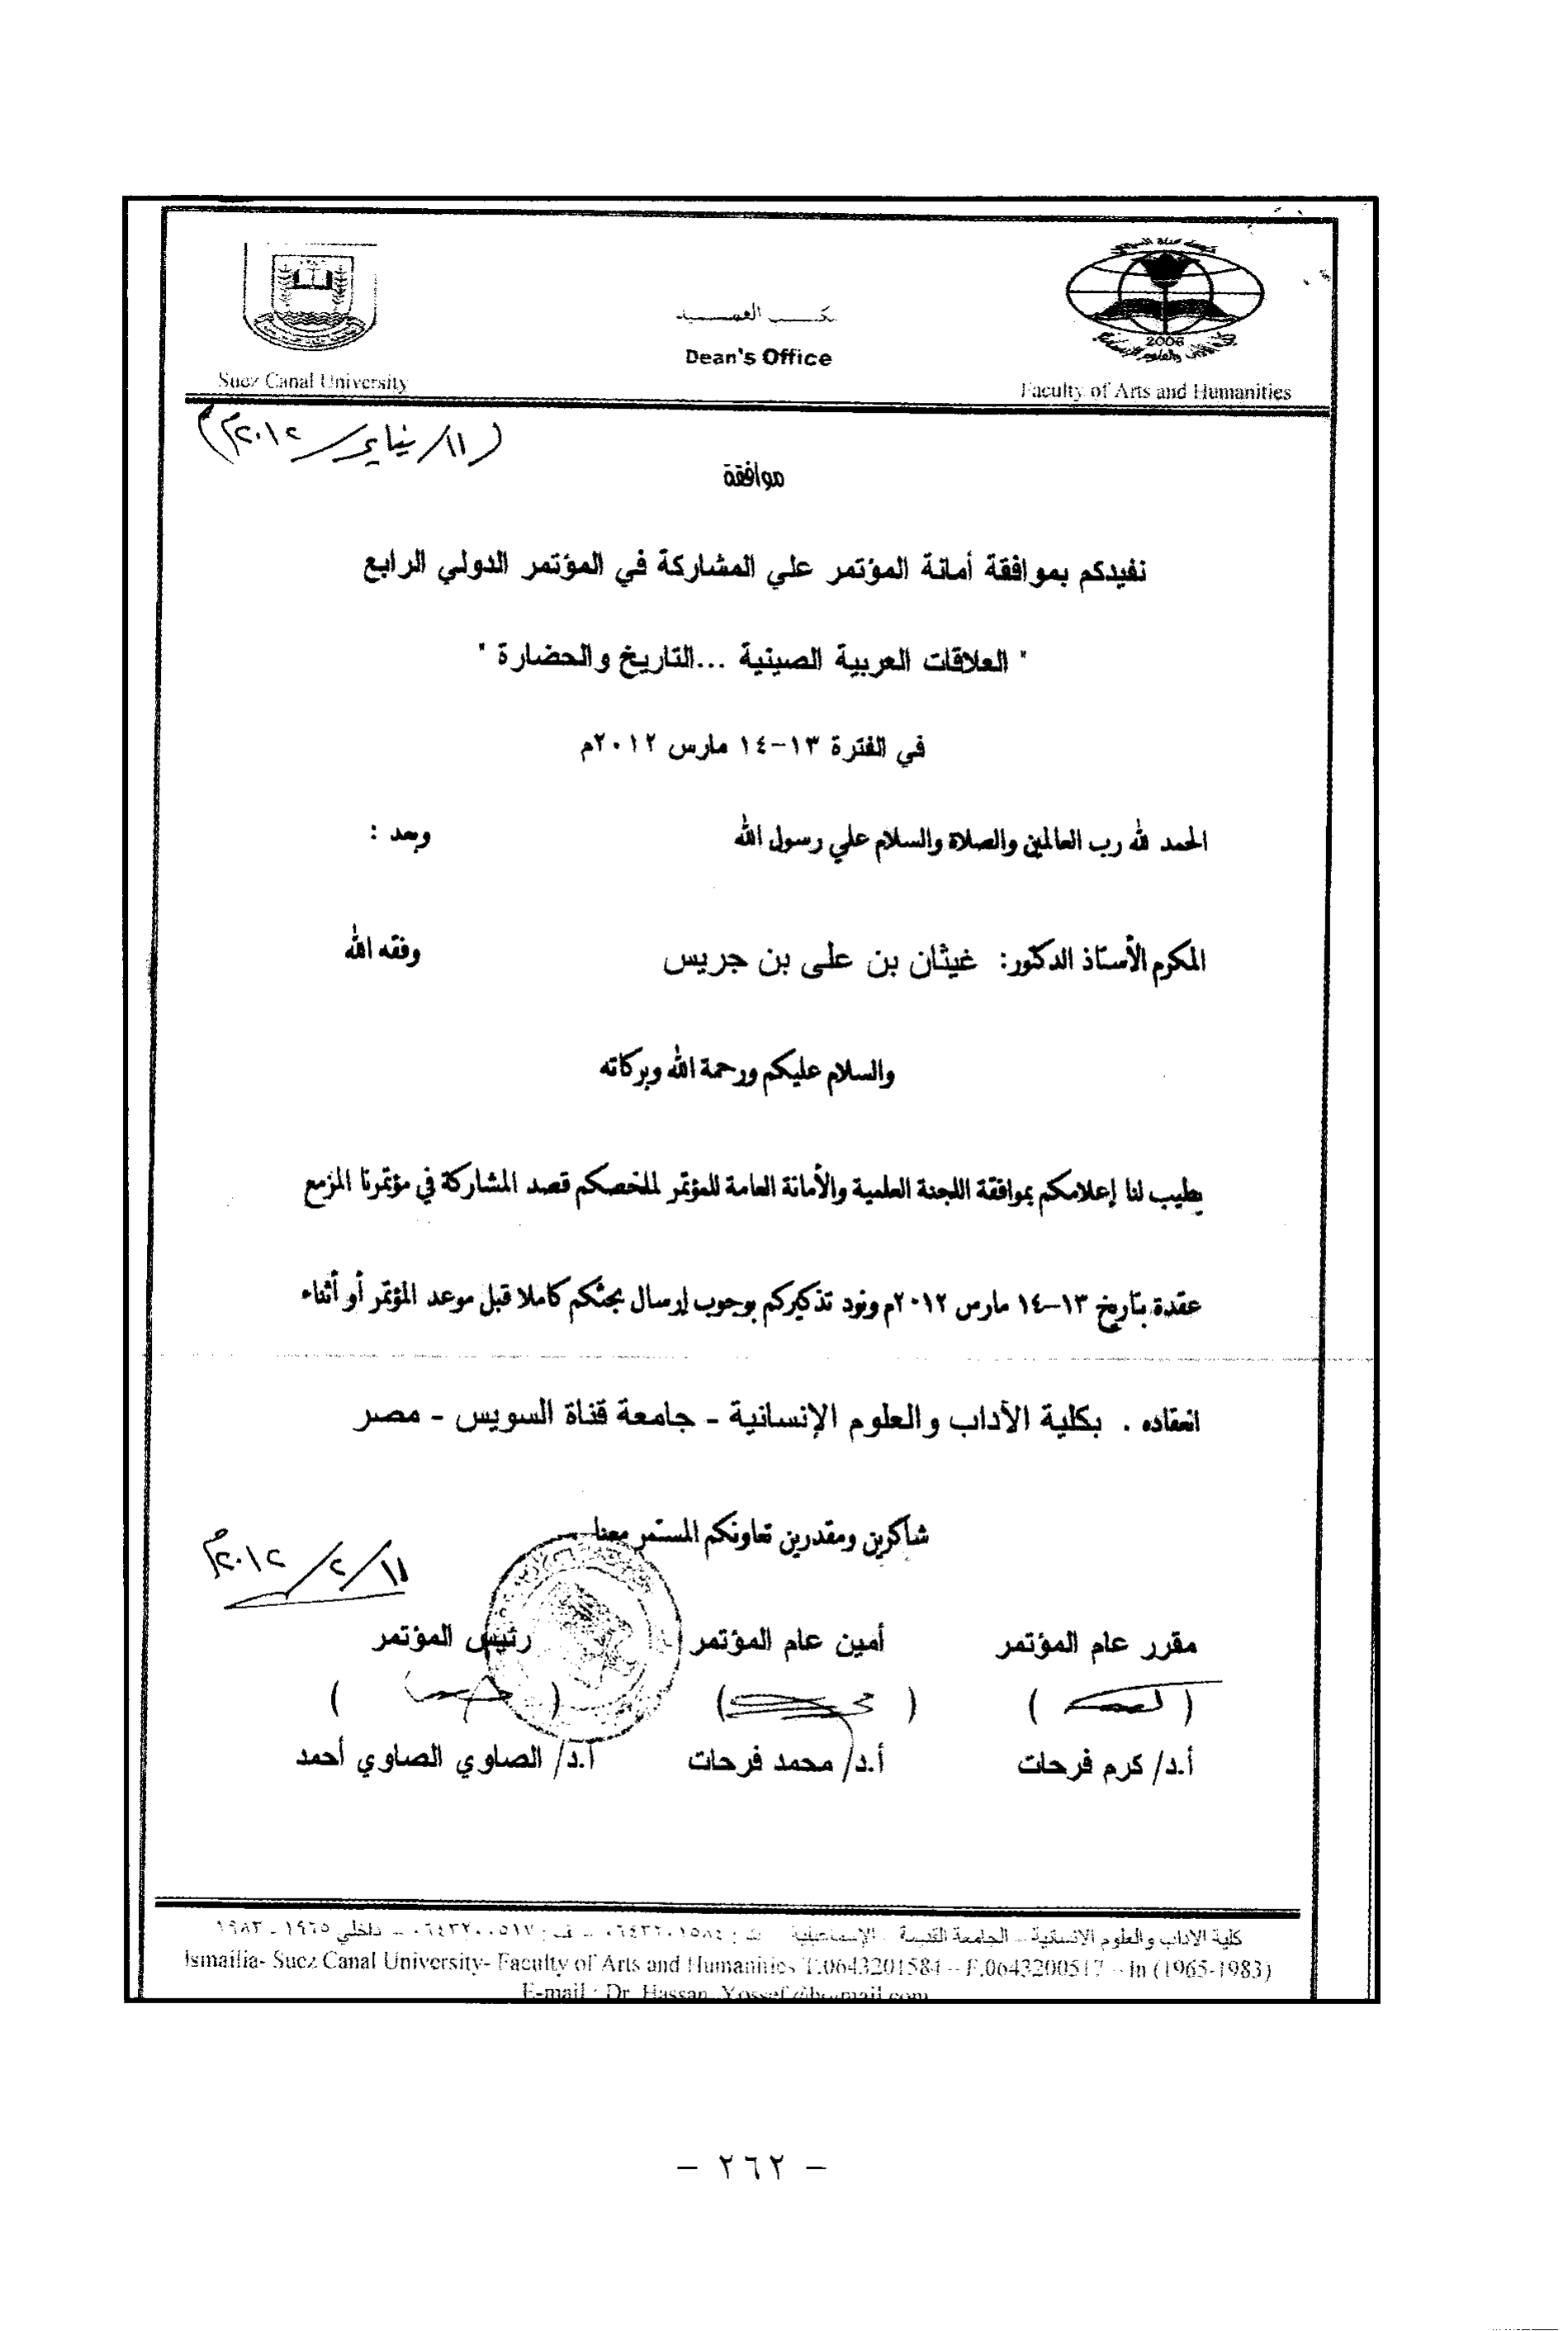 مكتب العميد
Dean's Office
Suez Canal University
Faculty of Arts and Humanities
2006
(١١/يناير/٢٠١٢م)
موافقة
نفيدكم بموافقة أمانة المؤتمر علي المشاركة في المؤتمر الدولي الرابع
" العلاقات العربية الصينية ...التاريخ والحضارة "
في الفترة ١٣-١٤ مارس ٢٠١٢م
الحمد لله رب العالمين والصلاة والسلام علي رسول الله وبعد :
المكرم الأستاذ الدكتور: غيثان بن على بن جريس وفقه الله
والسلام عليكم ورحمة الله وبركاته
يطيب لنا إعلامكم بموافقة اللجنة العلمية والأمانة العامة للمؤتمر لملخصكم قصد المشاركة في مؤتمرنا المزمع
عقدة بتاريخ ١٣-١٤ مارس ٢٠١٢م ونود تذكيركم بوجوب إرسال بحثكم كاملا قبل موعد المؤتمر أو أثناء
انعقاده . بكلية الأداب والعلوم الإنسانية - جامعة قناة السويس - مصر
شاكرين ومقدرين تعاونكم المستمر معنا
١١/٢/٢٠١٢م
مقرر عام المؤتمر أمين عام المؤتمر رئيس المؤتمر
أ.د/ كرم فرحات أ.د/ محمد فرحات أ.د/ الصاوي الصاوي أحمد
كلية الاداب والعلوم الانسانية – الجامعة القديمة – الإسماعيلية ت : ٠٦٤٣٢٠١٥٨٤ – ف : ٠٦٤٣٢٠٠٥١٧ – داخلي ١٩٦٥ - ١٩٨٣
Ismailia- Suez Canal University- Faculty of Arts and Humanities T.0643201584 – F.0643200517 – In (1965-1983)
E-mail : Dr_Hassan_Yossef@hotmail.com
- ٢٦٢ -